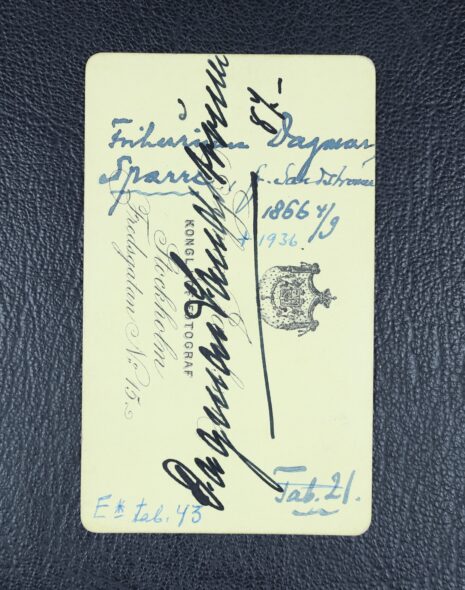 Friherrinnan Dagmar
Sparre, f. Sandströmer
1866 4/9
† 1936.
Dagmar Sandströmer
87.-
KONGL. HOFFOTOGRAF
Stockholm
Fredsgatan No 15.
Tab. 21.
E* tab. 43